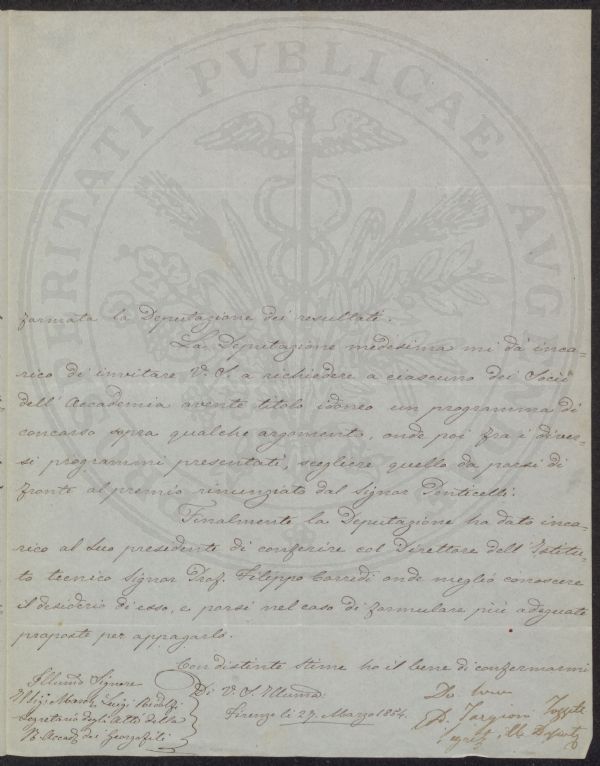 PROSPERITATI PVBLICAE AVGENDAE
formata la Deputazione dei resultati.
La Deputazione medesima mi dà inca-
rico di invitare V. S. a richiedere a ciascuno dei Socii
dell' Accademia avente titolo idoneo un programma di
concorso sopra qualche argomento, onde poi fra i diver-
si programmi presentati, scegliere quello da porsi di
fronte al premio rinunziato dal Signor Ponticelli.
Finalmente la Deputazione ha dato inca-
rico al suo presidente di conferire col Direttore dell' Istitu-
to tecnico Signor Prof. Filippo Corridi onde meglio conoscere
il desiderio di esso, e porsi nel caso di formulare più adeguate
proposte per appagarlo.
Con distinta stima ho il bene di confermarmi
Di V. S. Illuma
Firenze li 27. Marzo 1854.
Illumo Signore
Marcse Luigi Ridolfi
Segretario degli Atti della
R. Accad. dei Georgofili
D.
Targioni Tozzetti